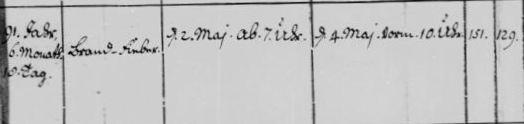 91. Jahr.
6. Monath
10. Tag.
Brand
d. 2. Maj. ab. 7. Uhr.
d. 4. Maj. Vorm. 10. Uhr
151.
129.